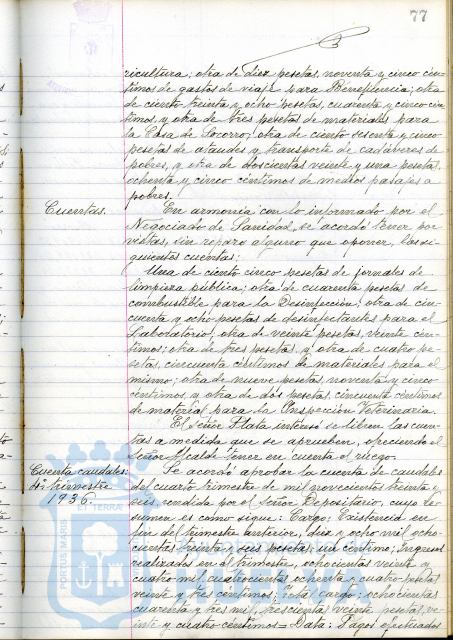 77
ricultura; otra de diez pesetas, noventa y cinco cén-
timos de gastos de viaje para Beneficencia; otra
de ciento treinta y ocho pesetas, cuarenta y cinco cén-
timos, y otra de tres pesetas de materiales para
la Casa de Socorro; otra de ciento sesenta y cinco
pesetas de ataudes y transporte de cadáveres de
pobres, y otra de doscientas veinte y una pesetas,
ochenta y cinco céntimos de medios pasajes a
pobres.
Cuentas. En armonía con lo informado por el
Negociado de Sanidad, se acordó tener por
vistas, sin reparo alguno que oponer, las si-
guientes cuentas:
Una de ciento cinco pesetas de jornales de
limpieza pública; otra de cuarenta pesetas de
combustible para la Desinfección; otra de cin-
cuenta y ocho pesetas de desinfectantes para el
Laboratorio; otra de veinte pesetas, veinte cén-
timos; otra de tres pesetas, y otra de cuatro pe-
setas, cincuenta céntimos de materiales para el
mismo; otra de nueve pesetas, noventa y cinco
céntimos, y otra de dos pesetas, cincuenta céntimos
de material para la Inspección Veterinaria.
El Señor Plata interesó se libren las cuen-
tas a medida que se aprueben, ofreciendo el
Señor Alcalde tener en cuenta el ruego.
Cuenta caudales:
4º trimestre
1936.
Se acordó aprobar la cuenta de caudales
del cuarto trimestre de mil novecientos treinta y
seis, rendida por el Señor Depositario, cuyo re-
sumen es como sigue: Cargo; Existencia en
fin del trimestre anterior, diez y ocho mil ocho-
cientas treinta y seis pesetas, un céntimo; Ingresos
realizados en el trimestre, ochocientas veinte y
cuatro mil, cuatrocientas ochenta y cuatro pesetas
veinte y tres céntimos; Total cargo: ochocientas
cuarenta y tres mil, trescientas veinte pesetas, ve-
inte y cuatro céntimos = Data: Pagos efectuados
PORTUS MARIS ET TERRA